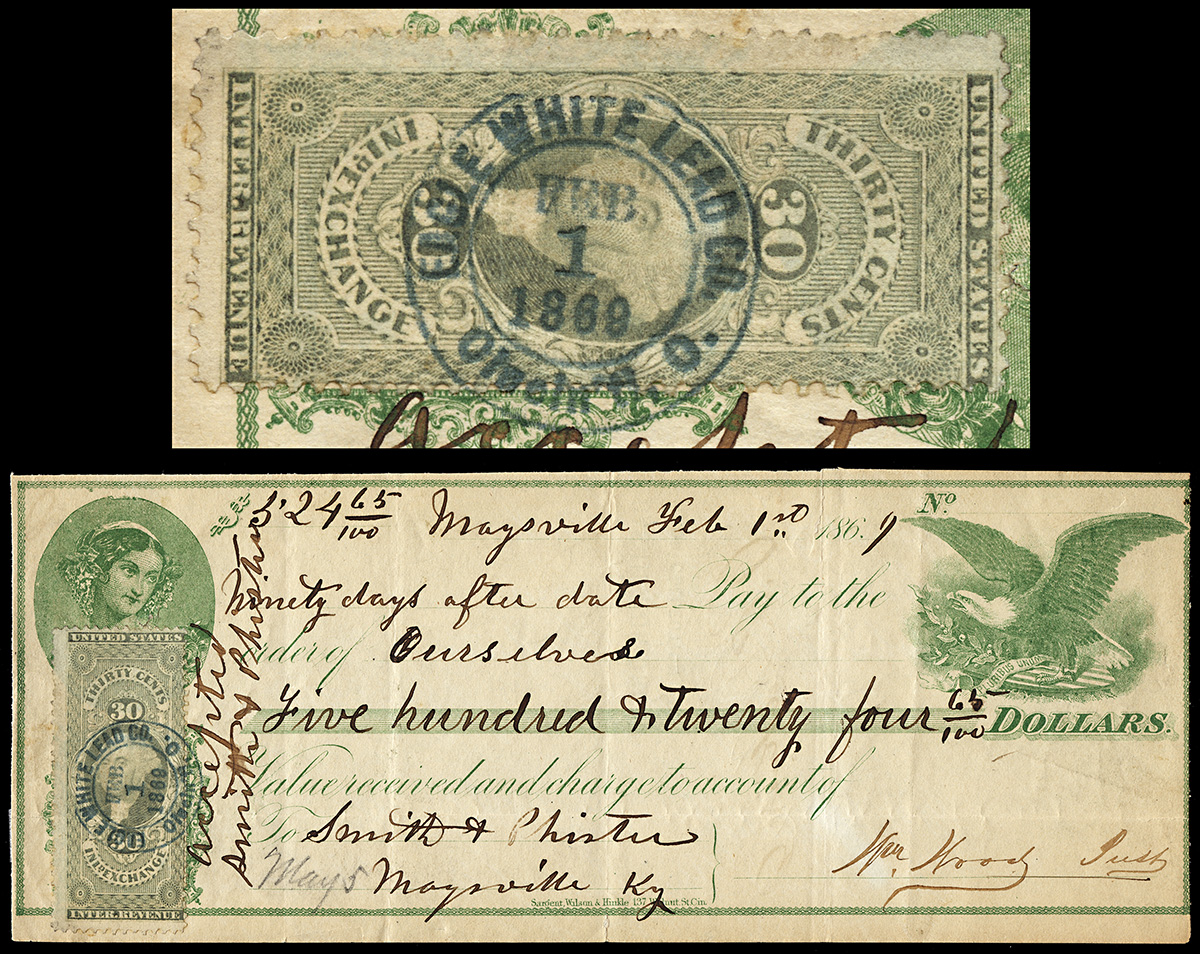 UNITED STATES
THIRTY CENTS
30
30
INL. EXCHANGE
INTER. REVENUE
WHITE LEAD CO.
FEB
1
1869
O.
524 65/100 Maysville Feb 1st 1869
No.
Ninety days after date Pay to the
order of Ourselves
Five hundred & twenty four 65/100 DOLLARS.
Value received and charge to account of
To Smith & Phister
Mays Maysville Ky
Wm Hood
Sargent, Wilson & Hinkle 137 Walnut. St. Cin.
Accepted
Smith & Phister
UNITED STATES
THIRTY CENTS
30
WHITE LEAD CO.
FEB
1
1869
30
INL. EXCHANGE
INTER. REVENUE